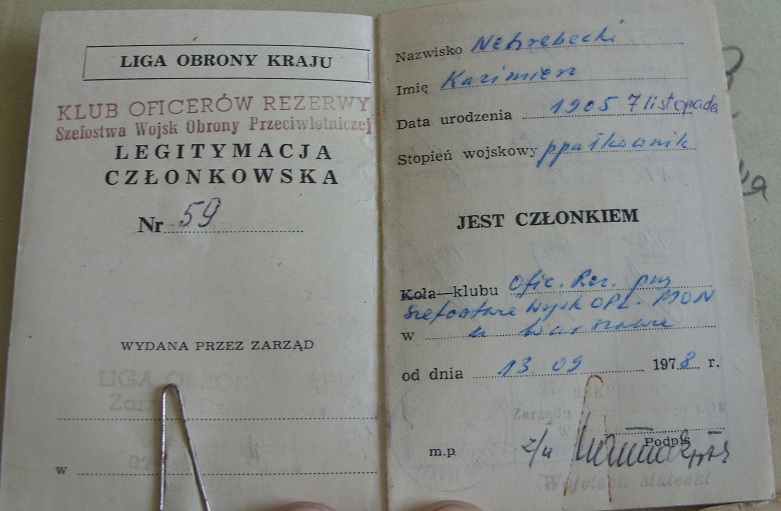 LIGA OBRONY KRAJU
KLUB OFICERÓW REZERWY
Szefostwa Wojsk Obrony Przeciwlotniczej
LEGITYMACJA
CZŁONKOWSKA
Nr 59
WYDANA PRZEZ ZARZĄD
LIGA OBRON
w
Nazwisko Nehrebecki
Imię Kazimierz
Data urodzenia 1905 7 listopada
Stopień wojskowy ppułkownik
JEST CZŁONKIEM
Koła—klubu Ofic. Rez. przy
Szefostwie Wojsk OPL. MON
w w Warszawie
od dnia 13 09 1978 r.
m.p. Podpis
Wojciech Małecki